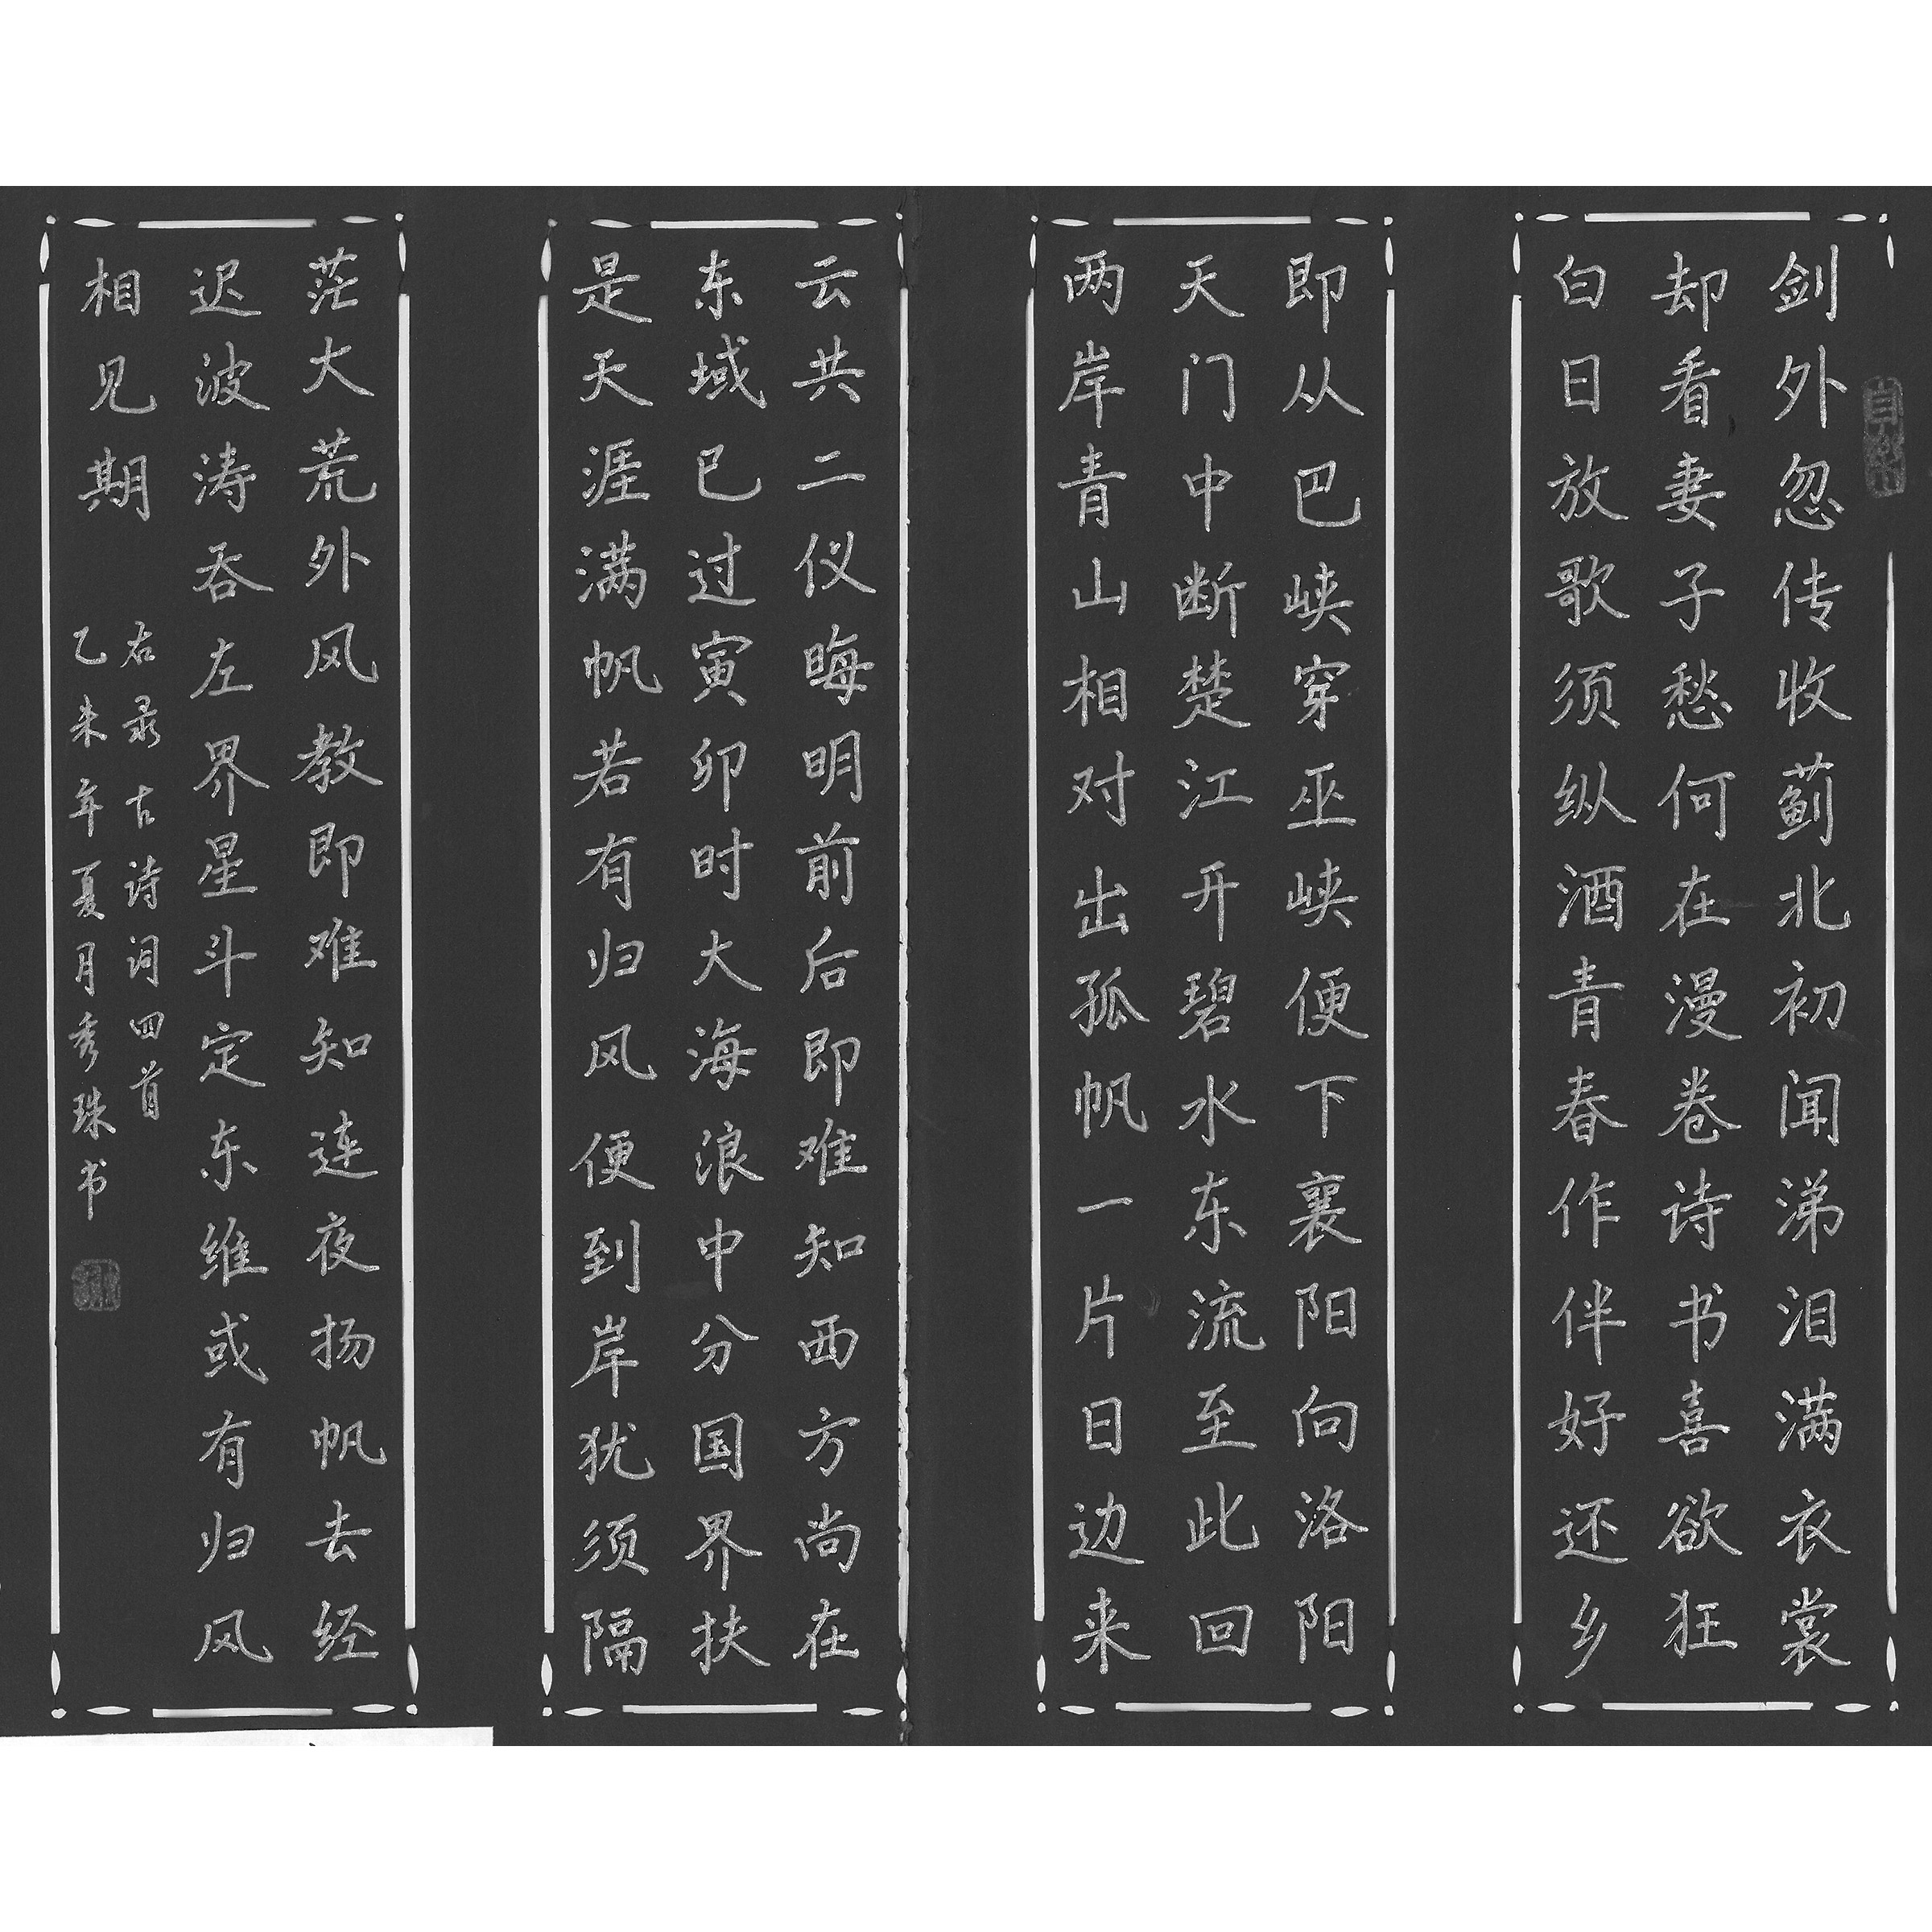 剑外忽传收蓟北初闻涕泪满衣裳
却看妻子愁何在漫卷诗书喜欲狂
白日放歌须纵酒青春作伴好还乡
即从巴峡穿巫峡便下襄阳向洛阳
天门中断楚江开碧水东流至此回
两岸青山相对出孤帆一片日边来
云共二仪晦明前后即难知西方尚在
东域已过寅卯时大海浪中分国界扶
是天涯满帆若有归风便到岸犹须隔
茫大荒外风教即难知连夜扬帆去经
迟波涛吞左界星斗定东维或有归风
相见期
右录古诗词四首
乙未年夏月秀珠书